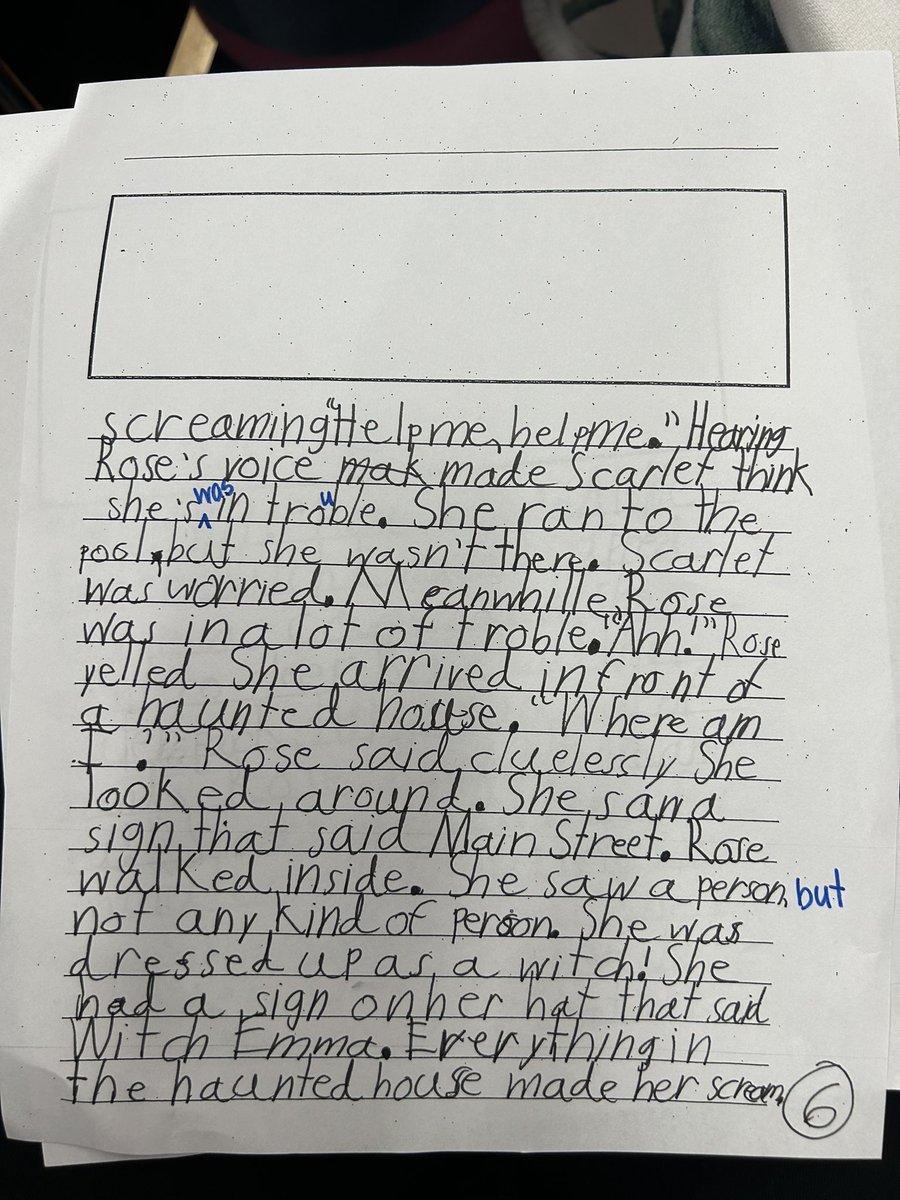 screaming "Help me, help me." Hearing
Rose's voice mak made Scarlet think
she's was in trouble. She ran to the
pool, but she wasn't there. Scarlet
was worried. Meanwhille, Rose
was in a lot of troble. "Ahh!" Rose
yelled She arrived in front of
a haunted house. "Where am
I ?" Rose said cluelessly She
looked around. She saw a
sign that said Main Street. Rose
walked inside. She saw a person, but
not any kind of person. She was
dressed up as a witch! She
had a sign on her hat that said
Witch Emma. Everything in
the haunted house made her scream.
6